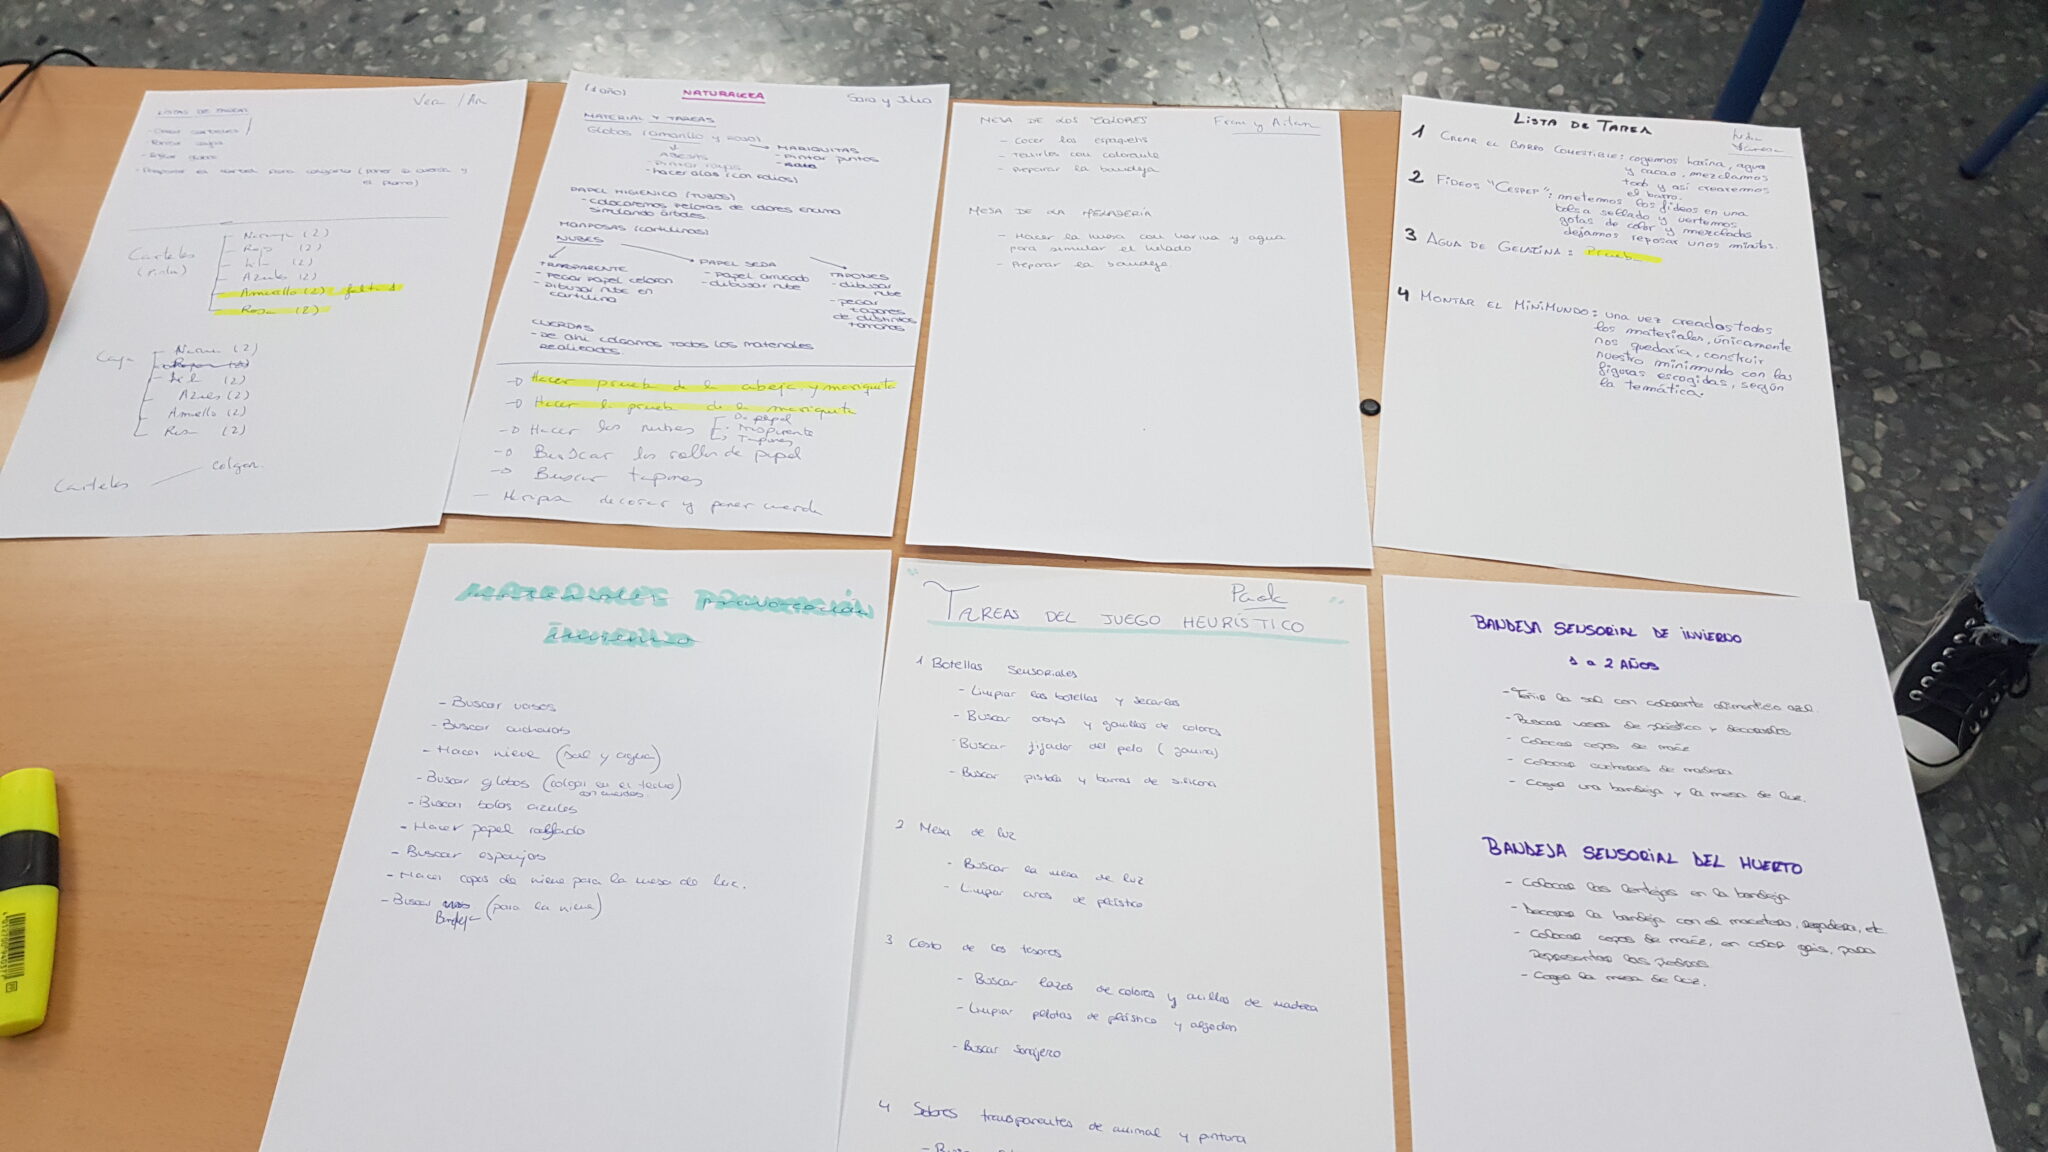 LISTAS DE TAREAS
Vera / An
Carteles
(rinlu)
Naranja (2)
Rojo (2)
(2)
Azules (2)
Amarillo (2) falta 1
Rosa (2)
Caja
Naranja (2)
(2)
Azules (2)
Amarillo (2)
Rosa (2)
Carteles
colgar.
(1 AÑO)
NATURALEZA
Sara y Julia
MATERIAL Y TAREAS
Globos (amarillo y rojo)
ABEJAS
- Pintar rayas
- Hacer alas (con folios)
MARIQUITAS
- Pintar puntos
PAPEL HIGIENICO (TUBOS)
- Colocaremos pelotas de colores encima
simulando árboles.
MARIPOSAS (cartulinas)
NUBES
TRASPARENTE
- Pegar papel celofán
- Dibujar nube en
cartulina
PAPEL SEDA
- Papel arrugado
- dibujar nube
TAPONES
- dibujar
nube
- pegar
tapones
de distintos
tamaños
CUERDAS
- De ahí colgamos todos los materiales
realizados.
Hacer prueba de la abeja y mariquita
Hacer la prueba de la mariquita
Hacer las nubes
De papel
Traspirente
Tapones
Buscar los rollos de papel
Buscar tapones
decorar y poner cuerda
MESA DE LOS COLORES
Fran y Aitana
- Cocer los espaguetis
- Teñirlos con colorante
- Preparar la bandeja
MESA DE LA HELADERIA
- Hacer la masa con harina y agua
para simular el helado
- Preparar la bandeja.
LISTA DE TAREA
1 CREAR EL BARRO COMESTIBLE: cogemos harina, agua
y cacao, mezclamos
todo y así crearemos
el barro.
2 FIDEOS "CESPEP": metemos los fideos en una
bolsa sellado y vertemos
gotas de color y mezclados
dejamos reposar unos minutos.
3 AGUA DE GELATINA: Prueba
4 MONTAR EL MINIMUNDO: una vez creados todos
los materiales, únicamente
nos quedaría, construir
nuestro minimundo con las
figuras escogidas, según
la temática.
MATERIALES PROVOCACIÓN
INVIERNO
- Buscar vasos
- Buscar cucharas
- Hacer nieve (sal y agua)
- Buscar globos (colgar en el techo)
con cuerdas
- Buscar bolas azules
- Hacer papel rasgado
- Buscar esponjas
- Hacer copos de nieve para la mesa de luz.
- Buscar (para la nieve)
Bandeja
Paola
" TAREAS DEL JUEGO HEURÍSTICO "
1 Botellas sensoriales
- Limpiar las botellas y secarlas
- Buscar orbys y gomillas de colores
- Buscar fijador del pelo (gomina)
- Buscar pistola y barras de silicona
2 Mesa de luz
- Buscar la mesa de luz
- Limpiar aros de plástico
3 Cesto de los tesoros
- Buscar lazos de colores y anillos de madera
- Limpiar pelotas de plástico y algodón
- Buscar sonajero
4 Sobres transparentes de animal y pintura
BANDEJA SENSORIAL DE INVIERNO
1 a 2 AÑOS
- Teñir la sal con colorante alimenticio azul.
- Buscar vasos de plástico y decorarlos
- Colocar copos de maíz
- Colocar cucharas de madera
- Coger una bandeja y la mesa de luz.
BANDEJA SENSORIAL DEL HUERTO
- Colocar las lentejas en la bandeja
- Decorar la bandeja con el macetero, regadera, etc
- Colocar copos de maíz, en color gris, para
representar las piedras
- Coger la mesa de luz.